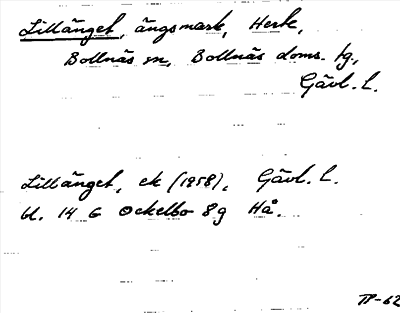 Lillänget, ängsmark, Herte,
Bollnäs sn, Bollnäs doms. tg,
Gävl. l.
Lillänget, ek (1958), Gävl. l.
bl. 14 G Ockelbo 8g Hå.
TP-62